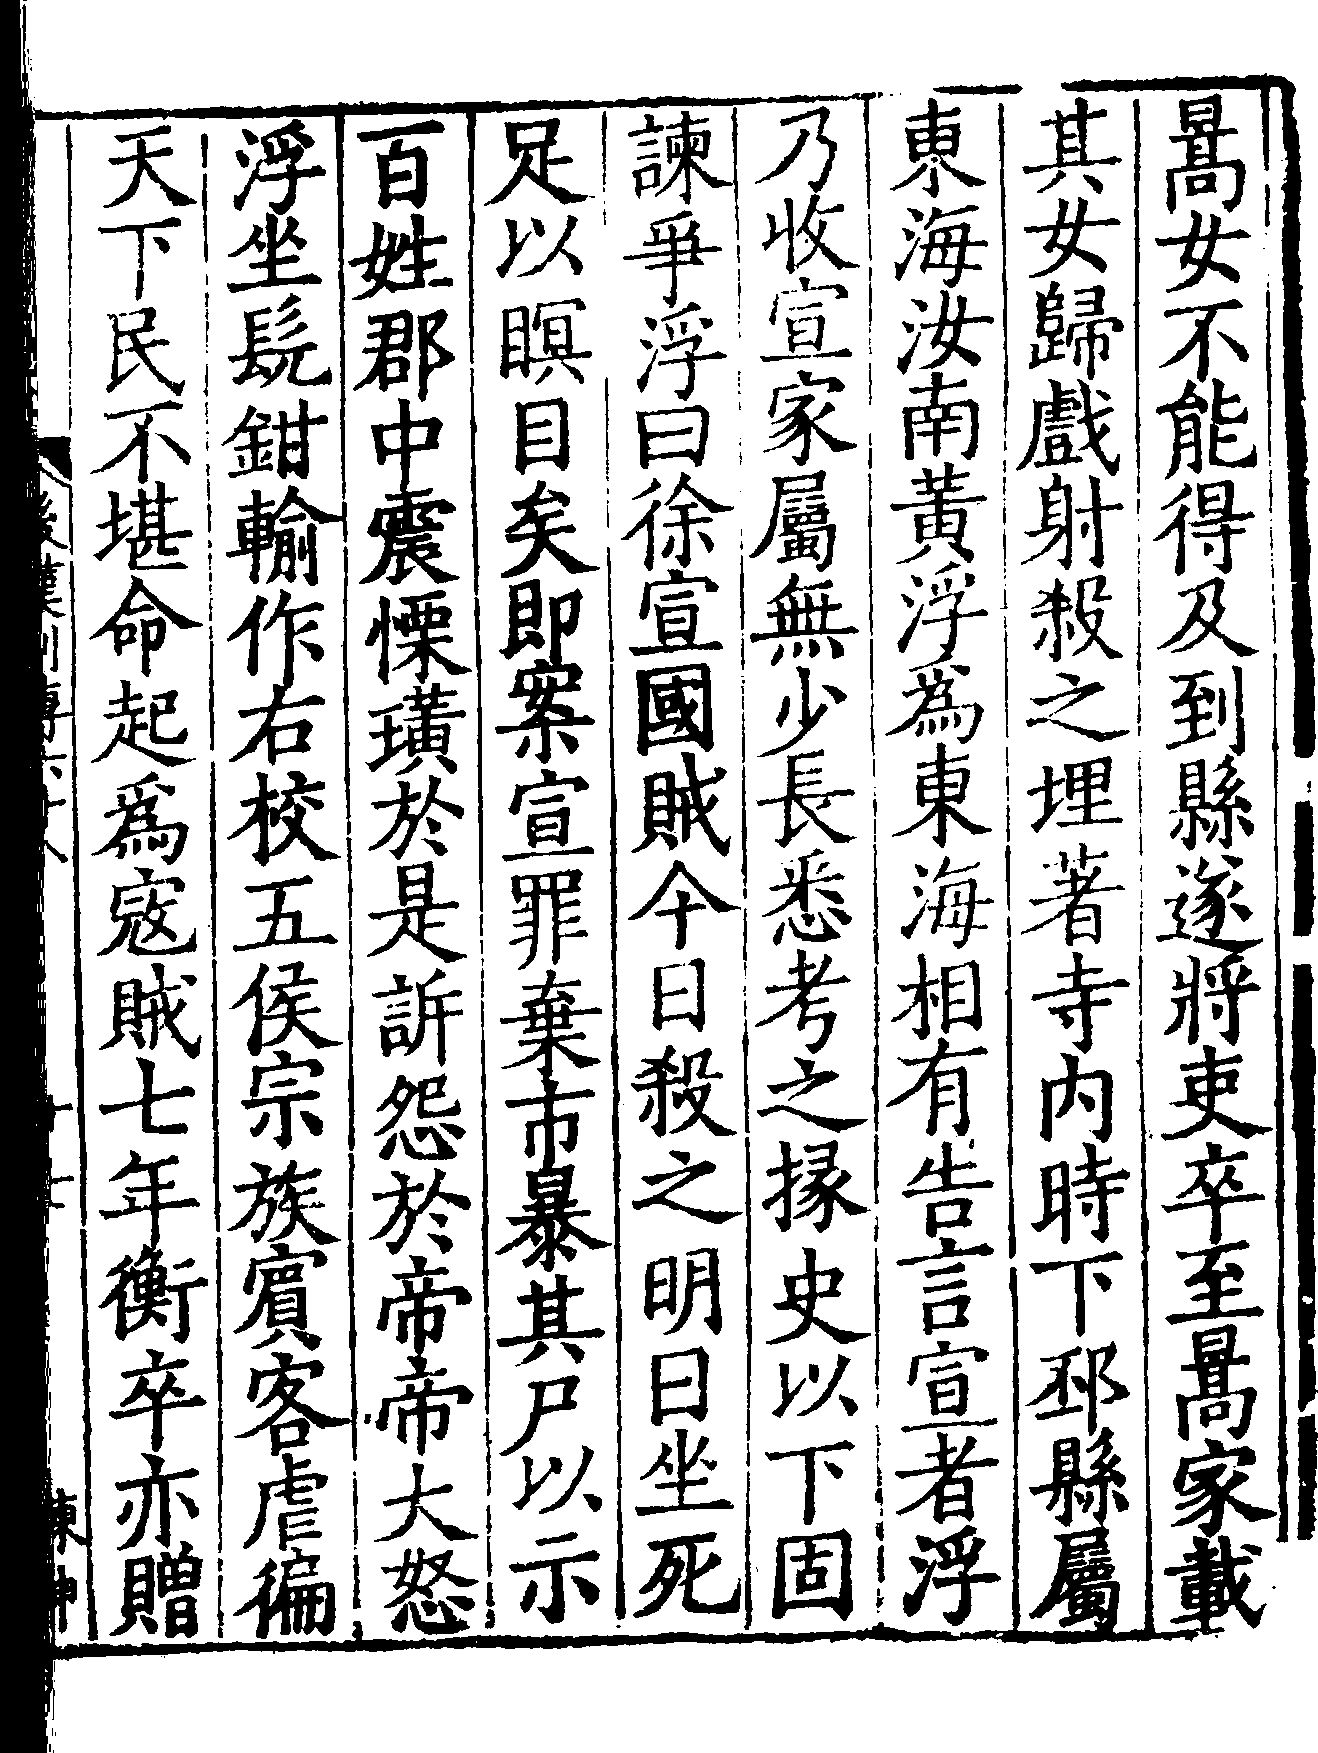 暠女不能得及到縣遂將吏卒至暠家載
其女歸戲射殺之埋著寺内時下邳縣屬
東海汝南黃浮爲東海相有告言宣者浮
乃收宣家屬無少長悉考之掾史以下固
諫爭浮曰徐宣國賊今日殺之明日坐死
足以瞑目矣即案宣罪棄市暴其尸以示
百姓郡中震慄璜於是訴怨於帝帝大怒
浮坐髡鉗輸作右校五侯宗族賔客虐徧
天下民不堪命起爲寇賊七年衡卒亦贈